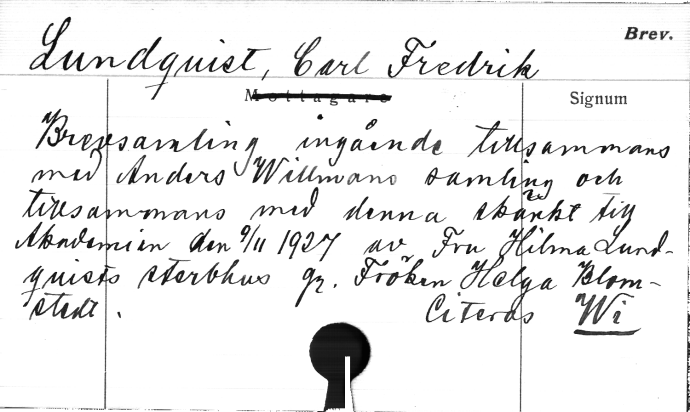 Brev.
Lundquist, Carl Fredrik
Mottagare
Signum
Brevsamling ingående tillsammans
med Anders Willmans samling och
tillsammans med denna skänkt till
Akademien den 9/11 1927 av Fru Hilma Lund-
quists sterbhus gr. Fröken Helga Blom-
stedt. Citeras Wi